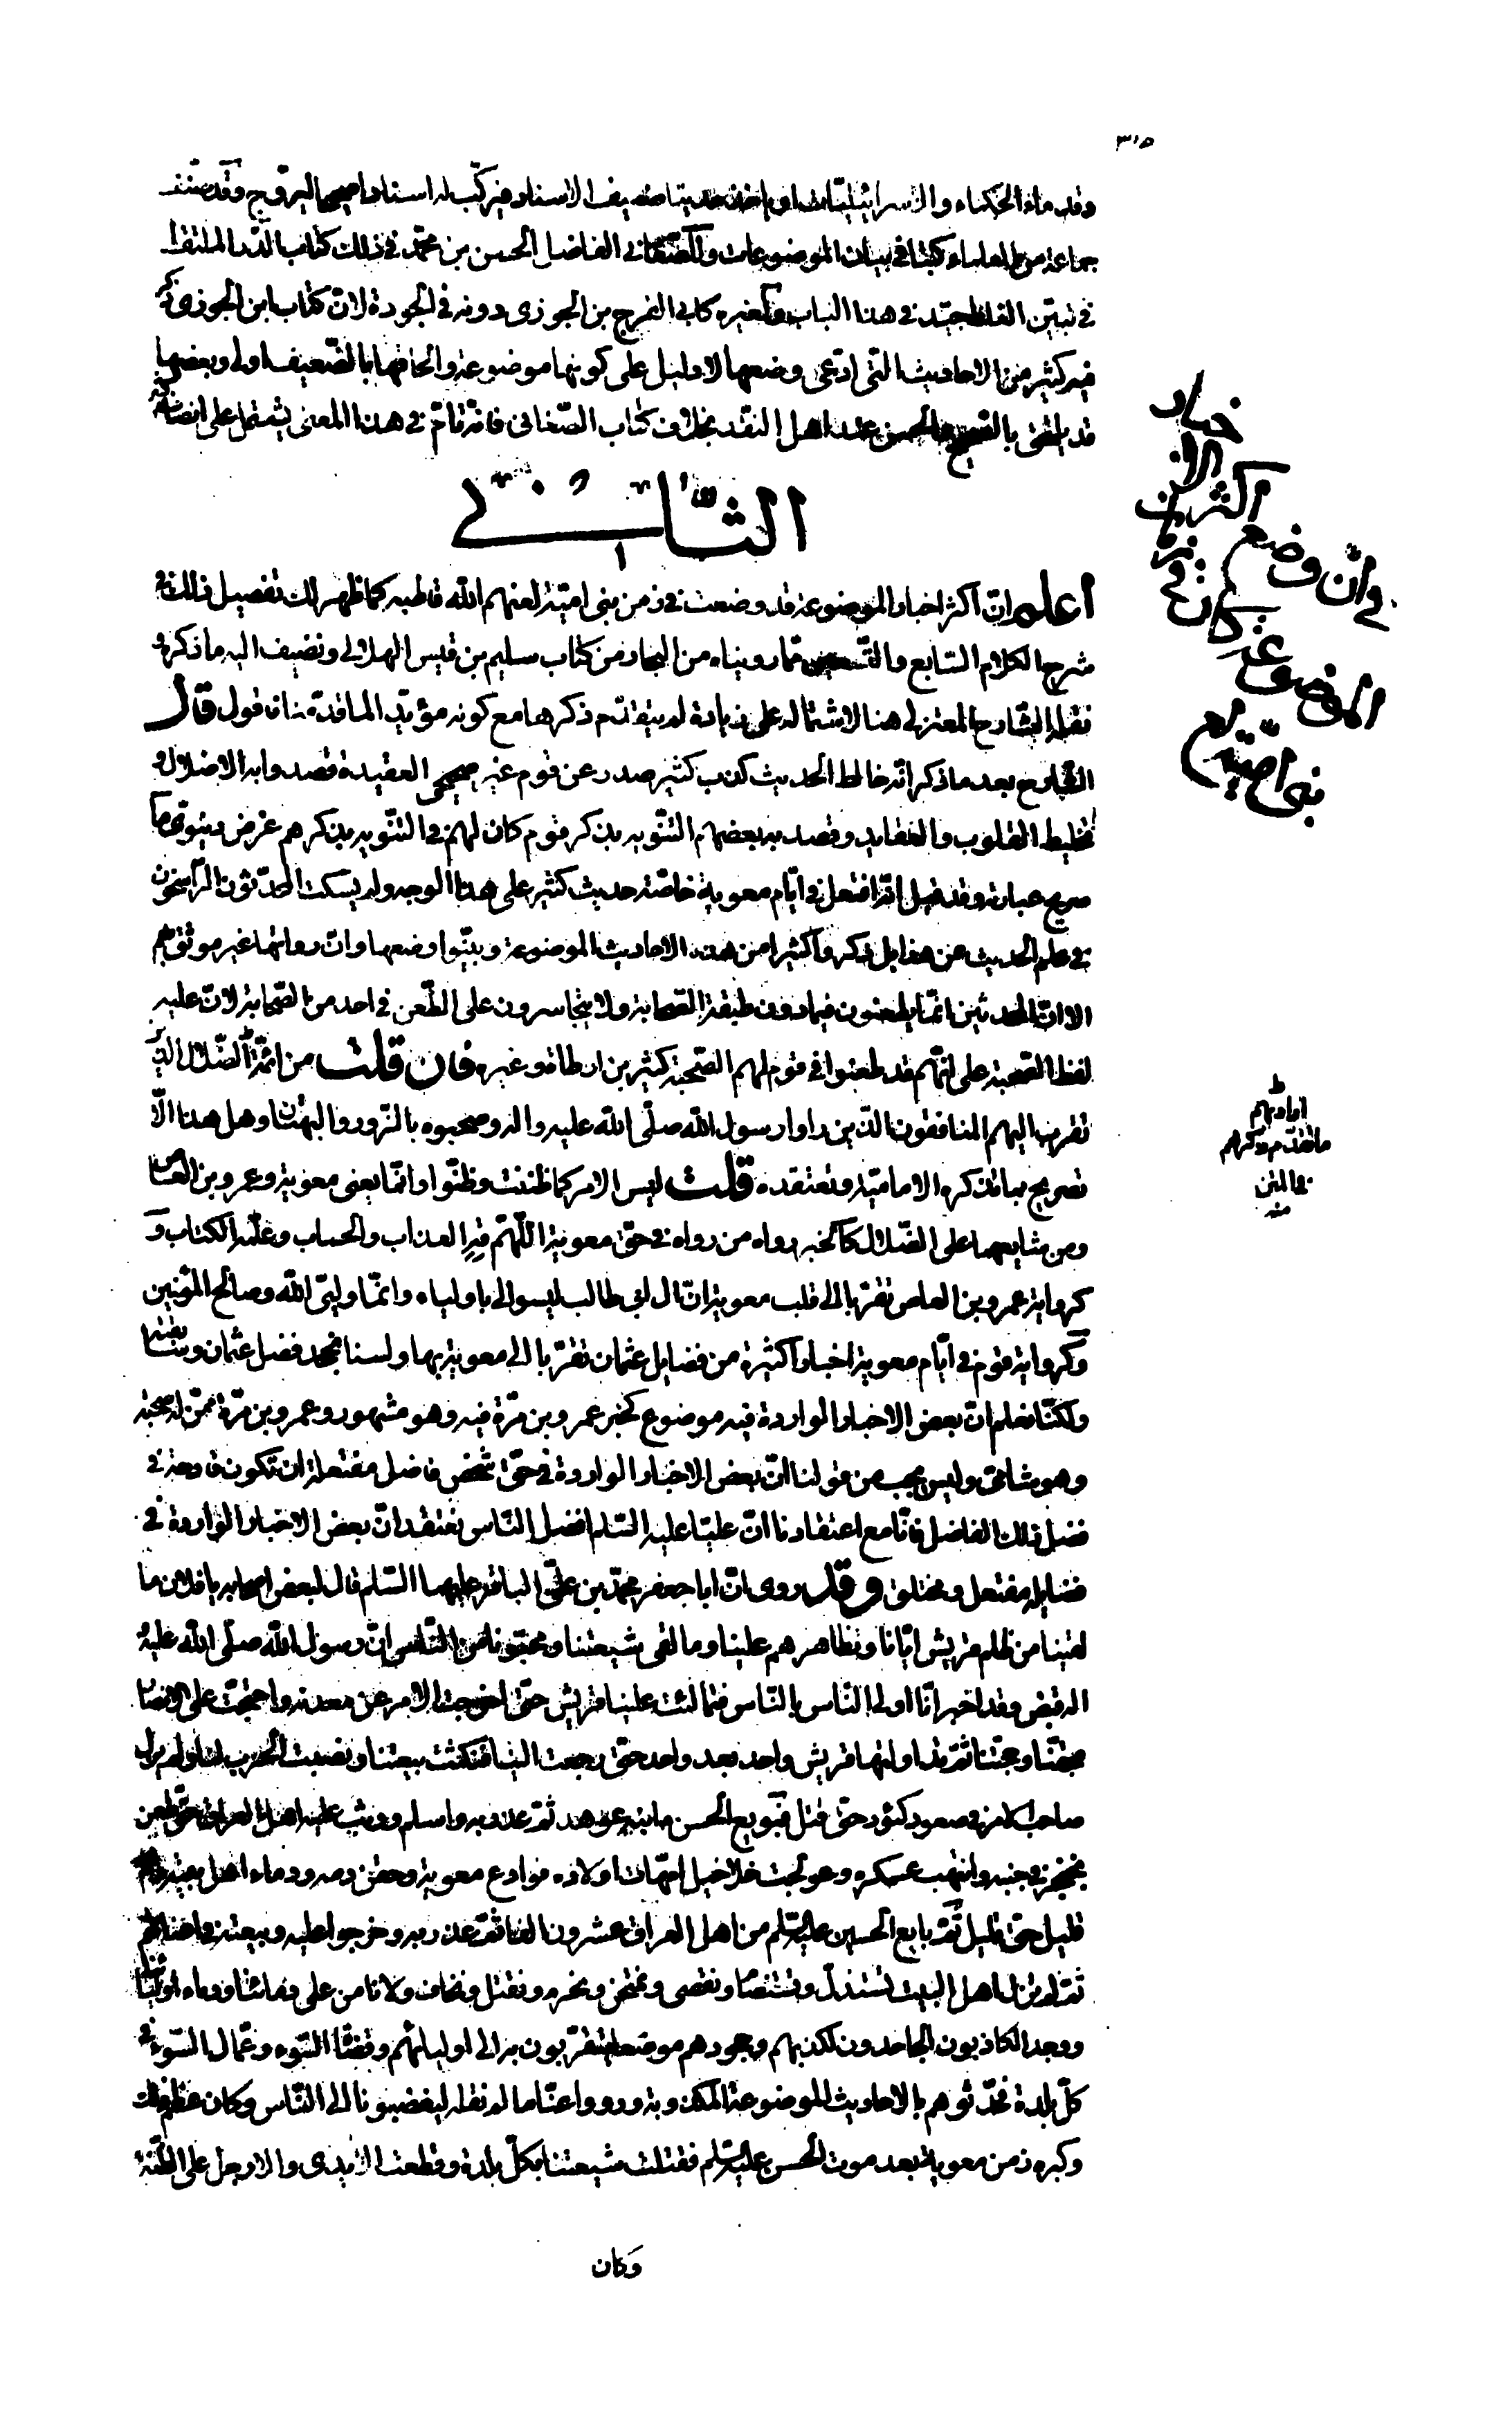 ٣١٥
وقدماء الحكماء والاسرائيليّات او ياخذ حديثا ضعيف الاسناد فيركّب له اسنادا صحيحا ليروّج وقد صنّف
جماعة من العلماء كتبا في بيان الموضوعات وللصّغاني الفاضل الحسن بن محمّد في ذلك كتاب الدّر الملتقط
في تبيّن الغلط جيّد في هذا الباب ولغيره كابي الفرج بن الجوزى دونه في الجودة لانّ كتاب ابن الجوزى ذكر
فيه كثير من الاحاديث الّتي ادّعى وضعها لا دليل على كونها موضوعة والحاقها بالضّعيف اولى وبعضها
قد يلحق بالصّحيح والحسن عند اهل النقد بخلاف كتاب الصّغاني فانّه تامّ في هذا المعنى يشتمل على انصاف
الثّاني
اعلم انّ اكثر اخبار الموضوعة قد وضعت في زمن بني اميّة لعنهم الله قاطبة كما ظهر لك تفصيل ذلك في
شرح الكلام السّابع والتّسعين ممّا رويناه من البحار من كتاب سليم بن قيس الهلالي ونضيف اليه ما ذكره و
نقله الشّارح المعتزلي هنا لاشتماله على زيادة لم يتقدّم ذكرها مع كونه مؤيّدا لما قدّمنا فاقول قال
الشّارح بعد ما ذكر انّه خالط الحديث كذب كثير صدر عن قوم غير صحيحي العقيدة قصدوا به الاضلال و
تخليط القلوب والعقايد وقصد به بعضهم التنويه بذكر قوم كان لهم في التّنويه بذكرهم غرض دنيوىّ ما
وقد قيل انّه افتعل في ايّام معوية خاصّة حديث كثير على هذا الوجه ولم يسكت المحدّثون الرّاسخون
في علم الحديث عن هذا بل ذكروا كثيرا من هذه الاحاديث الموضوعة وبيّنوا وضعها وانّ رواتها غير موثوق بهم
الا انّ المحدثين انّما يطعنون فيما دون طبقة الصّحابة ولا يتجاسرون على الطّعن في احد من الصّحابة لانّ عليه
لفظ الصّحبة على انّهم قد طعنوا في قوم لهم الصّحبة كبسر بن ارطاة وغيره فان قلت من ائمّة الضّلال الّذين
تقرب اليهم المنافقون الّذين راوا رسول الله صلّى الله عليه واله وصحبوه بالزّور والبهتان وهل هذا الّا
تصريح بما تذكره الاماميّة وتعتقده قلت ليس الامر كما ظننت وظنّوا وانّما يعنى معوية وعمرو بن العاص
ومن شايعهما على الضّلال كالخبر رواه من رواه في حقّ معوية اللّهمّ قه العذاب والحساب وعلّمه الكتاب و
كرواية عمرو بن العاص تقرّبا الى قلب معوية انّ ال ابي طالب ليسوا لي باولياء وانّما وليّى الله وصالح المؤمنين
وكرواية قوم في ايّام معوية اخبارا كثيرة من فضايل عثمان تقرّبا الى معوية بها ولسنا نجحد فضل عثمان وسابقته
ولكنّا نعلم انّ بعض الاخبار الواردة فيه موضوع كخبر عمرو بن مرّة فيه وهو مشهور وعمرو بن مرّة ممّن له صحبة
وهو شامىّ وليس يجب من قولنا انّ بعض الاخبار الواردة في حقّ شخص فاضل مفتعلة ان تكون قادحة في
فضل ذلك الفاضل فانّا مع اعتقادنا انّ عليّا عليه السّلم افضل النّاس نعتقد انّ بعض الاخبار الواردة في
فضايله مفتعل ومختلق وقد روى انّ ابا جعفر محمّد بن علىّ الباقر عليهما السّلم قال لبعض اصحابه يا فلان ما
لقينا من ظلم قريش ايّانا وتظاهرهم علينا وما لقى شيعتنا ومحبّونا من النّاس انّ رسول الله صلّى الله عليه و
اله قبض وقد اخبر انّا اولى النّاس بالنّاس فتمالئت علينا قريش حتّى اخرجت الامر عن معدنه واحتجّت على الانصار
بحقّنا وحجّتنا ثمّ تداولتها قريش واحد بعد واحد حتّى رجعت الينا فنكثت بيعتنا ونصبت الحرب لنا ولم يزل
صاحب الامر في صعود كئود حتّى قتل فبويع الحسن ابنه وعوهد ثمّ غدر به واسلم ووثب عليه اهل العراق حتّى طعن
بخنجر في جنبه وانتهب عسكره وعولجت خلاخيل امّهات اولاده فوادع معوية وحقن دمه ودماء اهل بيته وهم
قليل حقّ قليل ثمّ بايع الحسين عليه السّلم من اهل العراق عشرون الفا ثمّ غدر به وخرجوا عليه وبيعته في اعناقهم
ثمّ لم نزل اهل البيت نستذلّ ونستضام ونقصى ونمتهن ونحرم ونقتل ونخاف ولا نامن على دمائنا ودماء اوليائنا
ووجد الكاذبون الجاحدون لكذبهم وجحودهم موضعا يتقرّبون به الى اوليائهم وقضاة السّوء وعمّال السّوء في
كلّ بلدة فحدّثوهم بالاحاديث الموضوعة المكذوبة ورووا عنّا ما لم نقله ليبغضونا الى النّاس وكان عظم ذلك
وكبره زمن معوية بعد موت الحسن عليه السّلم فقتلت شيعتنا بكلّ بلدة وقطعت الايدى والارجل على الظّنّة
وكان
في انّ وضع اكثر الاخبار
الموضوعة كان في زمن
بني اميّة
ما تقدّم ذكرهم
في المتن
منه